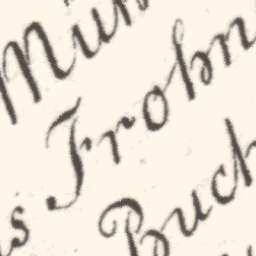 Mün
s Frohn
Buch